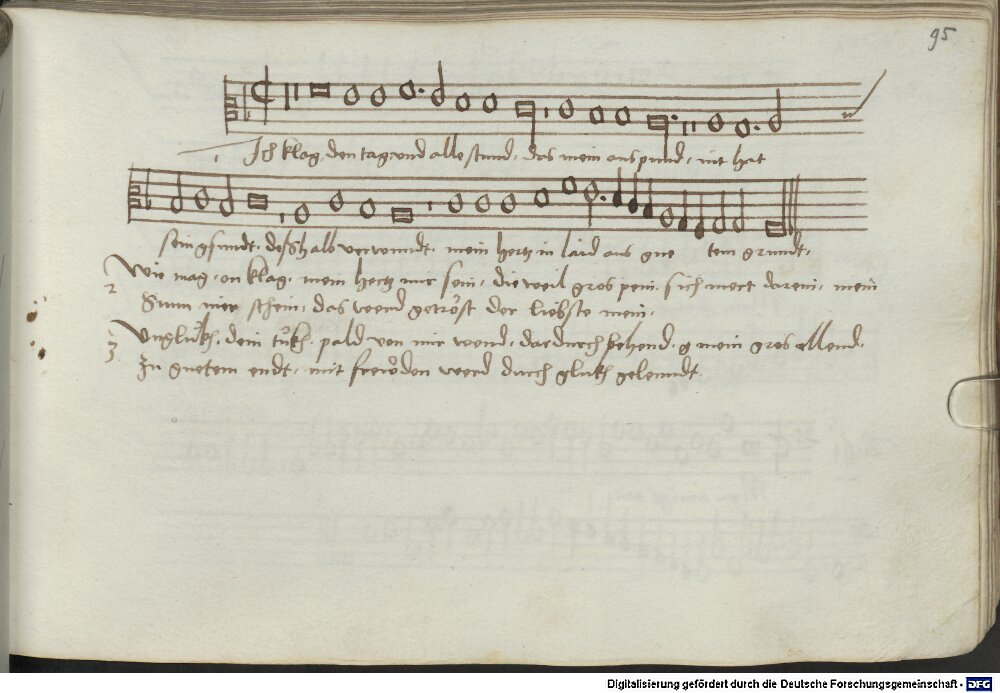 95
Ich klag, den tag, vnd alle stund, das mein aus pund, nit hat
sein gsundt, deßhalb verwundt, mein hertz in laid aus gue tem grundt,
2 Wie mag, on klag, mein hertz nur sein, die weil gros pein, sich mert darein, mein
Sunn nier schein, das werd getröst der liebste mein,
3 Vnglükh, dein tükh, pald von mir wend, dardurch behend, mein gros ellend,
Zu guetem endt, mit frewden werd durch glükh gelenndt.
Digitalisierung gefördert durch die Deutsche Forschungsgemeinschaft - DFG